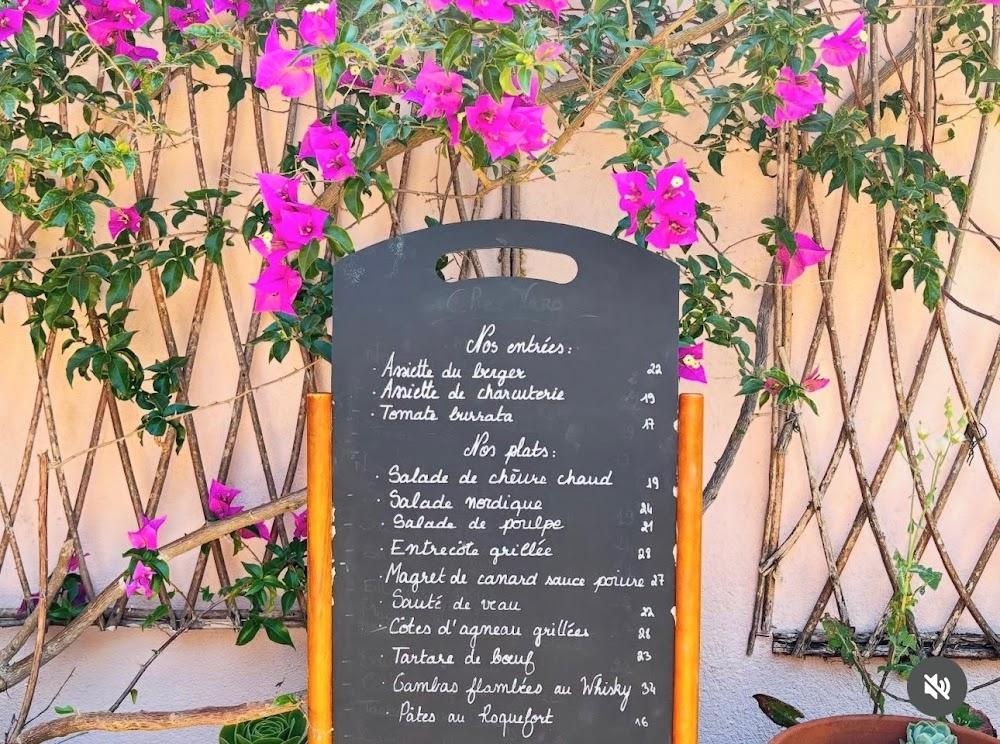 Nos entrées:
· Assiette du berger 22
· Assiette de charcuterie 19
· Tomate burrata 17
Nos plats:
· Salade de chèvre chaud 19
· Salade nordique 24
· Salade de poulpe 21
· Entrecôte grillée 28
· Magret de canard sauce poivre 27
· Sauté de veau 22
· Côtes d'agneau grillées 28
· Tartare de bœuf 23
· Gambas flambées au Whisky 34
· Pâtes au Roquefort 16